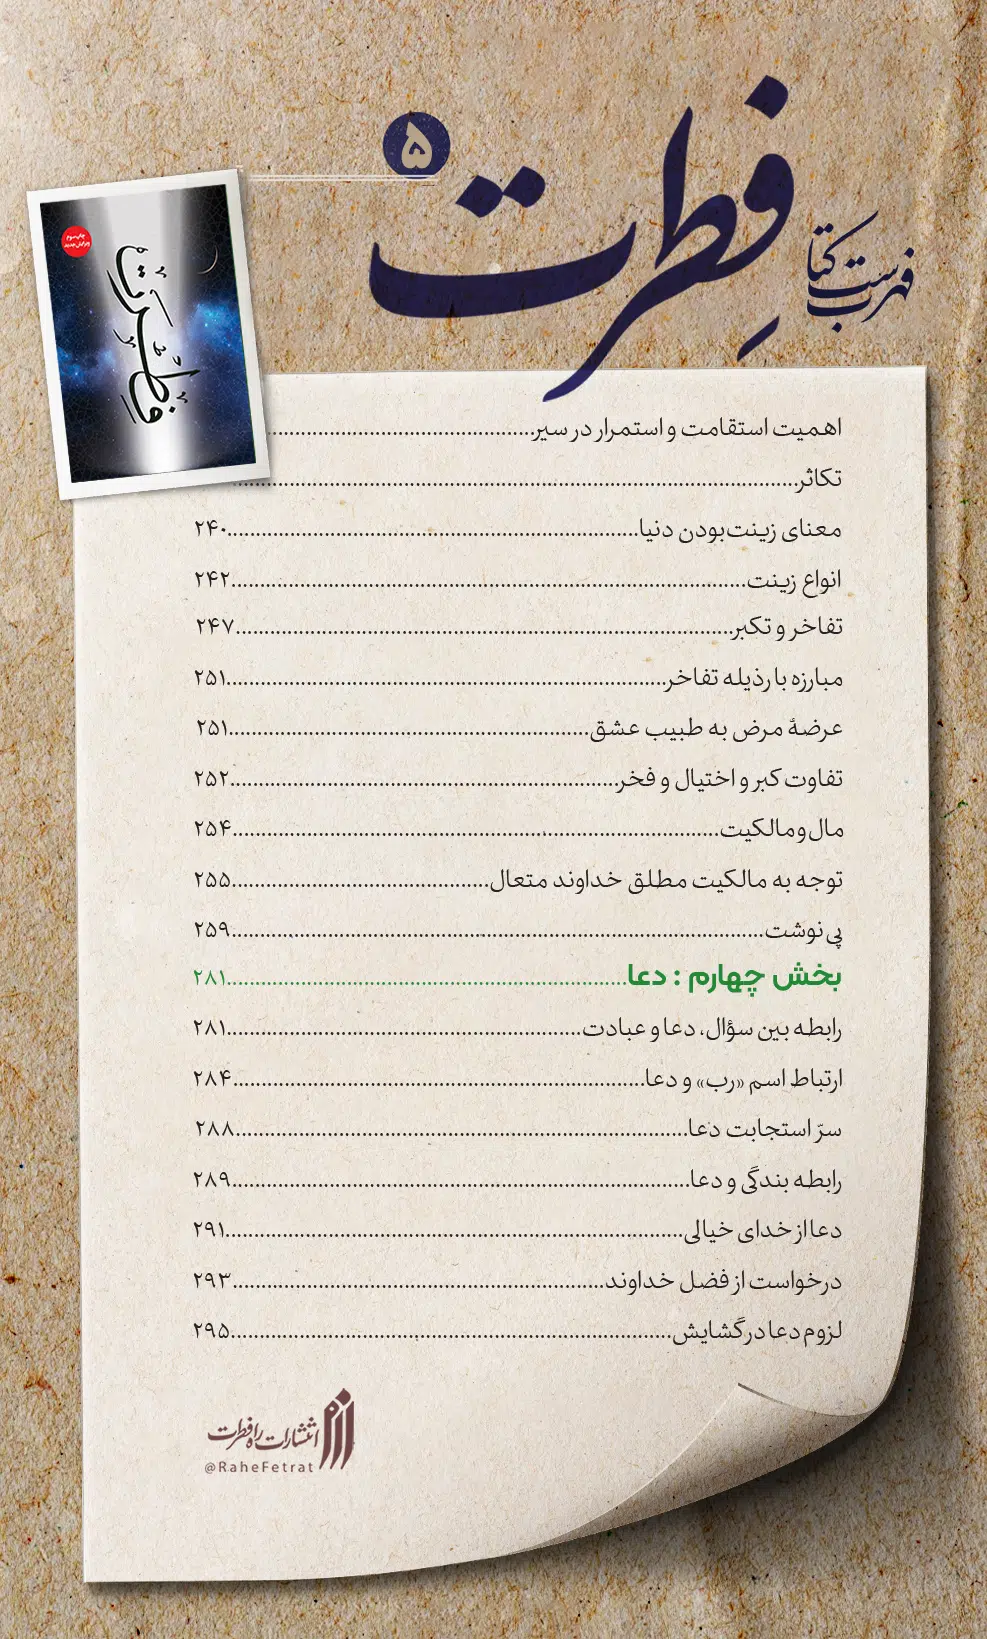 فهرست کتاب
فطرت
۵
چاپ سوم
ویرایش جدید
فطرت
اهمیت استقامت و استمرار در سیر..............................................
تکاثر..............................................................................
معنای زینت‌بودن دنیا..............................................................۲۴۰
انواع زینت..............................................................................۲۴۲
تفاخر و تکبر..............................................................................۲۴۷
مبارزه با رذیله تفاخر..............................................................۲۵۱
عرضهٔ مرض به طبیب عشق..............................................................۲۵۱
تفاوت کبر و اختیال و فخر..............................................................۲۵۲
مال و مالکیت..............................................................................۲۵۴
توجه به مالکیت مطلق خداوند متعال..............................................۲۵۵
پی‌نوشت..............................................................................۲۵۹
بخش چهارم : دعا..............................................................۲۸۱
رابطه بین سؤال، دعا و عبادت..............................................................۲۸۱
ارتباط اسم «رب» و دعا..............................................................۲۸۴
سرّ استجابت دعا..............................................................۲۸۸
رابطه بندگی و دعا..............................................................۲۸۹
دعا از خدای خیالی..............................................................۲۹۱
درخواست از فضل خداوند..............................................................۲۹۳
لزوم دعا در گشایش..............................................................۲۹۵
انتشارات راه فطرت
@RaheFetrat